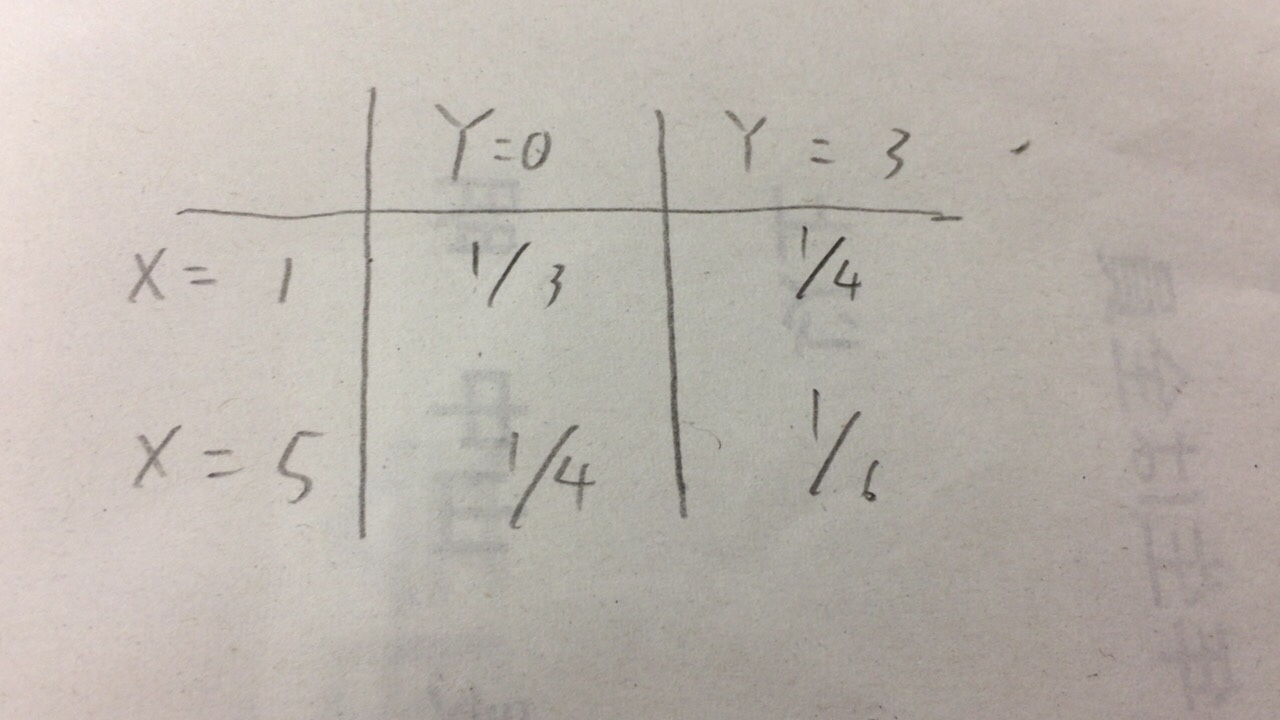 Y=0 Y = 3
X = 1 1/3 1/4
X = 5 1/4 1/6